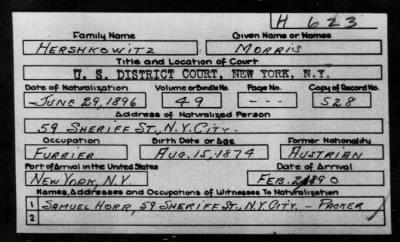 H 623
Family Name Given Name or Names
HERSHKOWITZ MORRIS
Title and Location of Court
U. S. DISTRICT COURT, NEW YORK, N.Y.
Date of Naturalization Volume or Bundle No. Page No. Copy of Record No.
JUNE 29, 1896 49 --- 528
Address of Naturalized Person
59 SHERIFF ST., N.Y. CITY.
Occupation Birth Date or Age Former Nationality
FURRIER AUG. 15, 1874 AUSTRIAN
Port of Arrival in the United States Date of Arrival
NEW YORK, N.Y. FEB. 1890
Names, Addresses and Occupations of Witnesses To Naturalization
1 SAMUEL HORR, 59 SHERIFF ST., N.Y. CITY. - PACKER
2